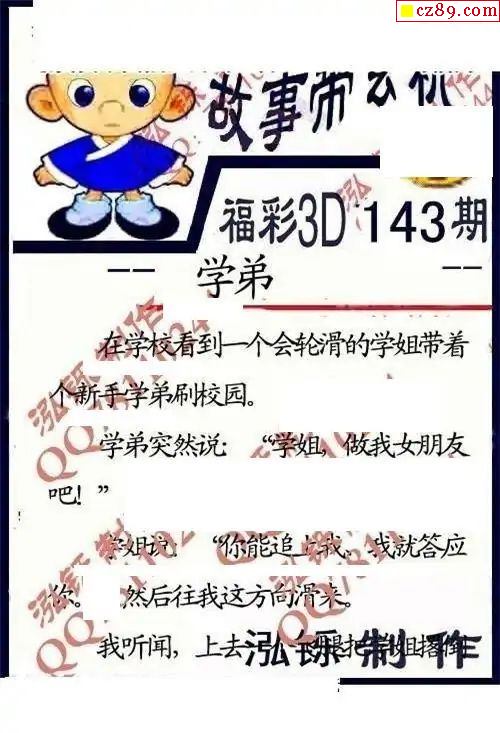 cz89.com
故事带玄机
福彩3D 143期
-- 学弟 --
在学校看到一个会轮滑的学姐带着
个新手学弟刷校园。
学弟突然说：“学姐，做我女朋友
吧！”
学姐说：“你能追上我，我就答应
你。 然后往我这方向滑来。
我听闻，上去一 腿把学姐撂倒
泓铄 制作